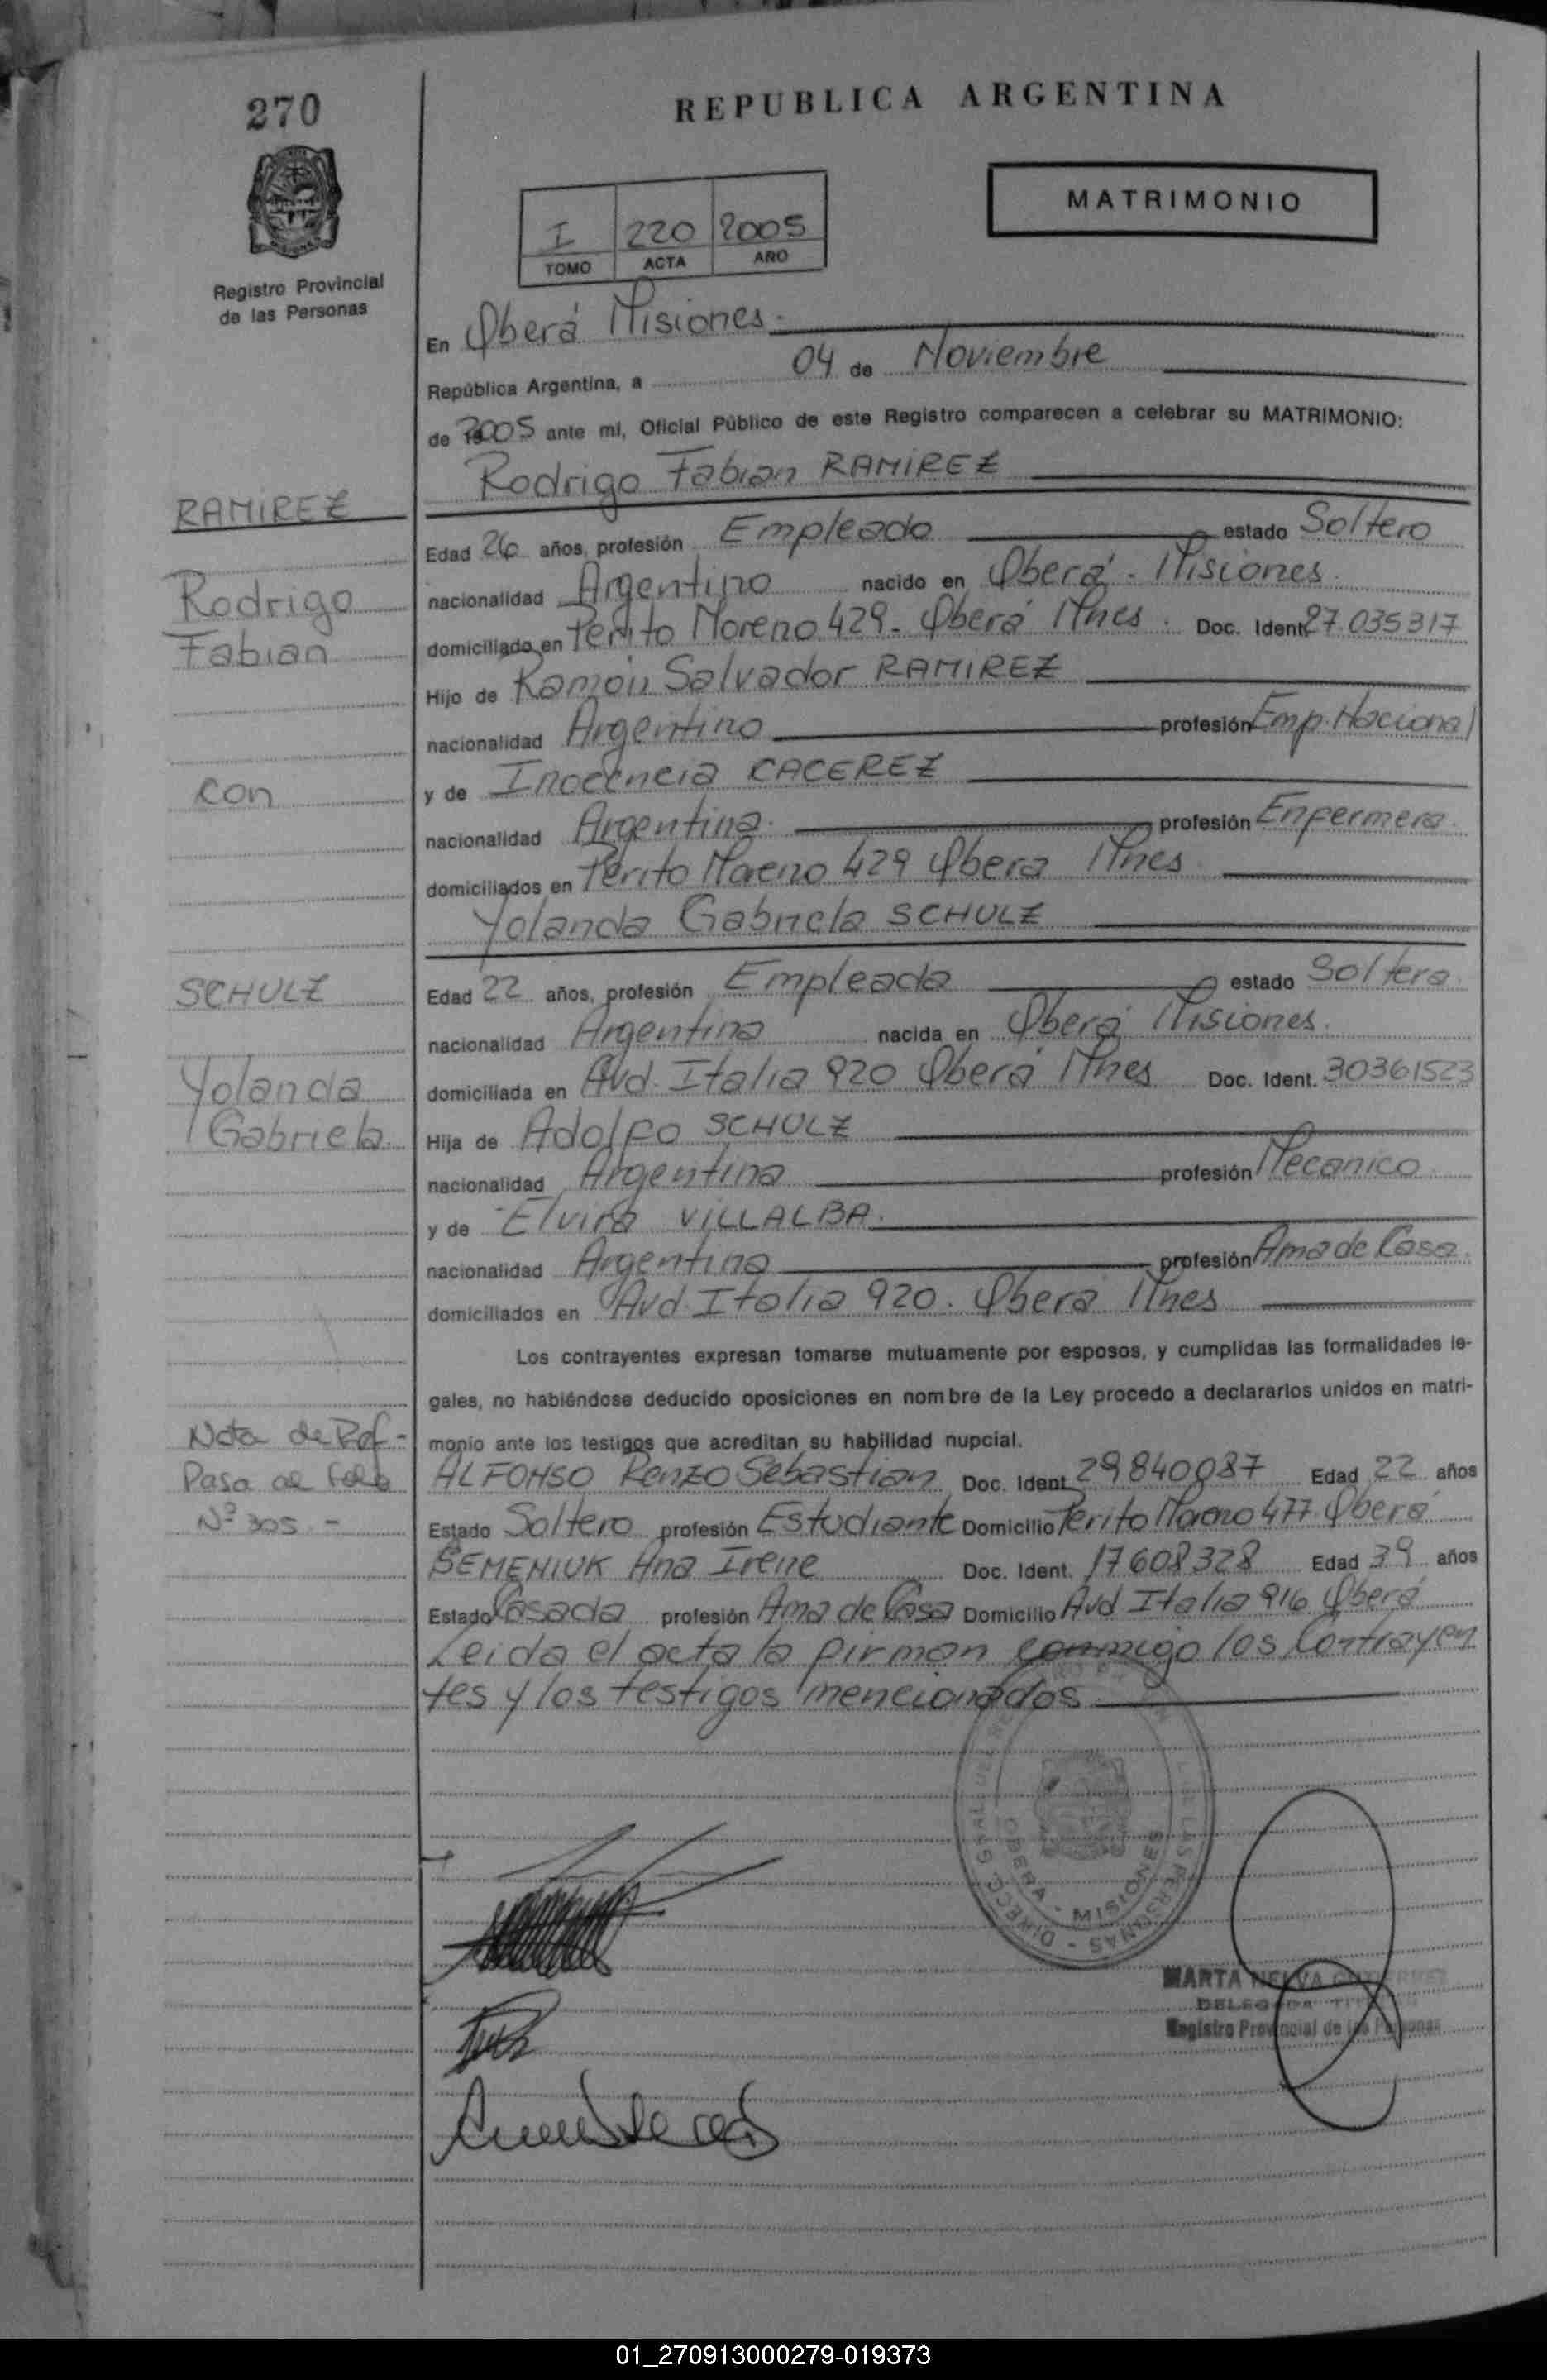 270
REPUBLICA ARGENTINA
MATRIMONIO
I 220 2005
TOMO ACTA AÑO
Registro Provincial
de las Personas
En Oberá Misiones.
República Argentina, a 04 de Noviembre
de 2005 ante mí, Oficial Público de este Registro comparecen a celebrar su MATRIMONIO:
Rodrigo Fabian RAMIREZ
RAMIREZ
Edad 26 años, profesión Empleado estado Soltero
Rodrigo
nacionalidad Argentino nacido en Oberá - Misiones.
Fabian
domiciliado en Perito Moreno 429 - Oberá Mnes. Doc. Ident. 27.035317
Hijo de Ramón Salvador RAMIREZ
nacionalidad Argentino profesión Emp. Nacional
con
y de Inocencia CACEREZ
nacionalidad Argentina. profesión Enfermera.
domiciliados en Perito Moreno 429 Oberá Mnes
Yolanda Gabriela SCHULZ
SCHULZ
Edad 22 años, profesión Empleada estado Soltera
nacionalidad Argentina nacida en Oberá Misiones.
Yolanda
domiciliada en Avd. Italia 920 Oberá Mnes Doc. Ident. 30361523
Gabriela
Hija de Adolfo SCHULZ
nacionalidad Argentino profesión Mecanico
y de Elvira VILLALBA.
nacionalidad Argentina profesión Ama de Casa.
domiciliados en Avd. Italia 920. Oberá Mnes
Los contrayentes expresan tomarse mutuamente por esposos, y cumplidas las formalidades le-
gales, no habiéndose deducido oposiciones en nombre de la Ley procedo a declararlos unidos en matri-
monio ante los testigos que acreditan su habilidad nupcial.
Nota de Ref -
Pasa al folio
Nº 305 -
ALFONSO Renzo Sebastian Doc. Ident. 29840087 Edad 22 años
Estado Soltero profesión Estudiante Domicilio Perito Moreno 477 Oberá
SEMENIUK Ana Irene Doc. Ident. 17608328 Edad 39 años
Estado Casada profesión Ama de Casa Domicilio Avd Italia 916 Oberá
Leida el acta la firman conmigo los Contrayen
tes y los testigos mencionados
OBERA - MISIONES
MARTA NELVA
DELEGADA TITULAR
Registro Provincial de las Personas
01_270913000279-019373